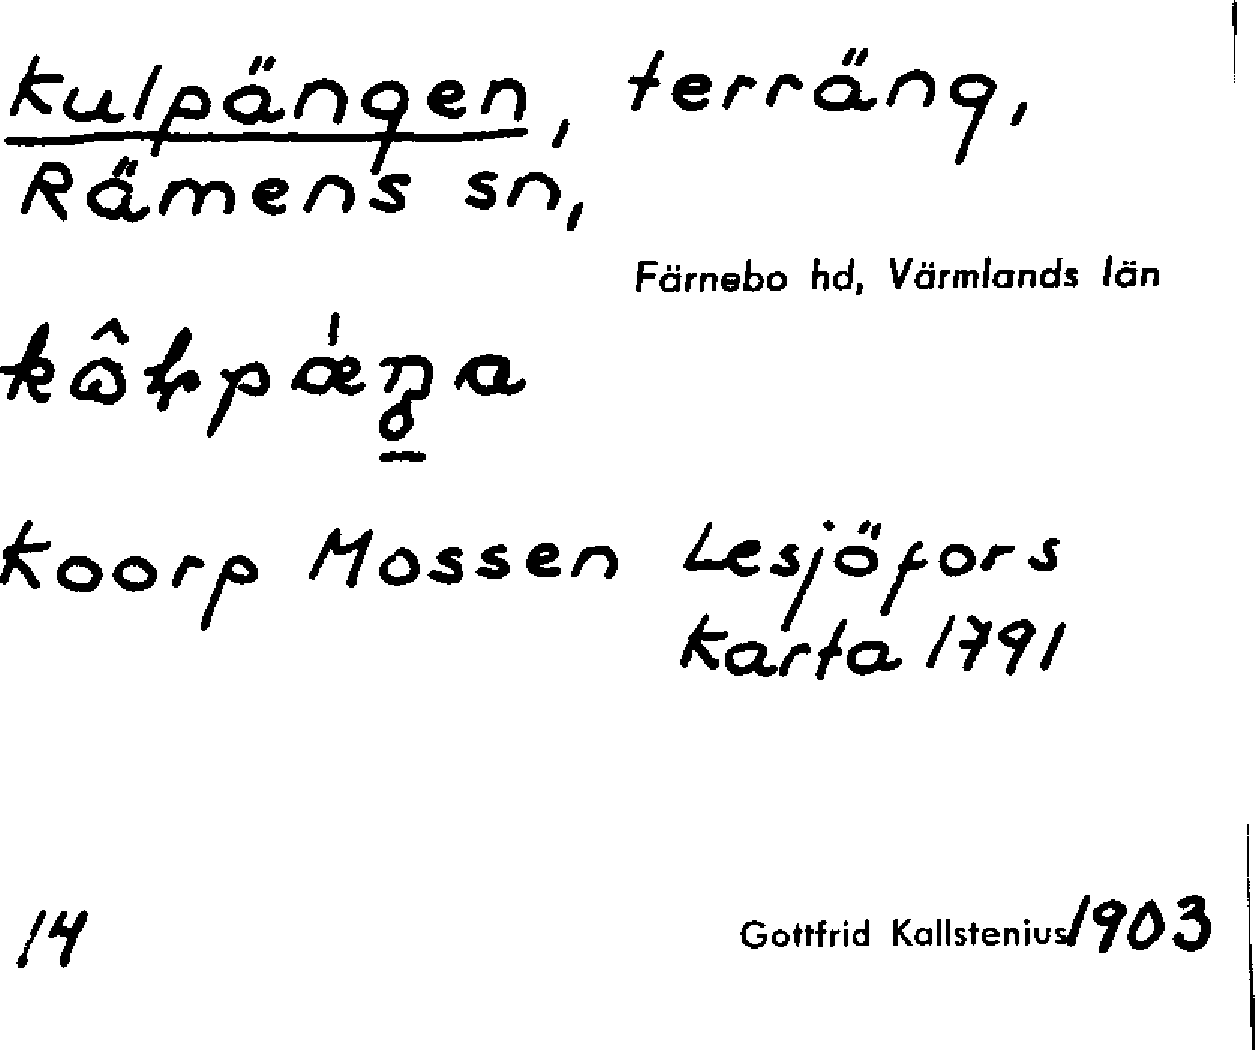 Kulpängen, terräng,
Rämens sn,
Färnebo hd, Värmlands län
Koorp Mossen Lesjöfors
Karta 1791
14
Gottfrid Kallstenius 1903